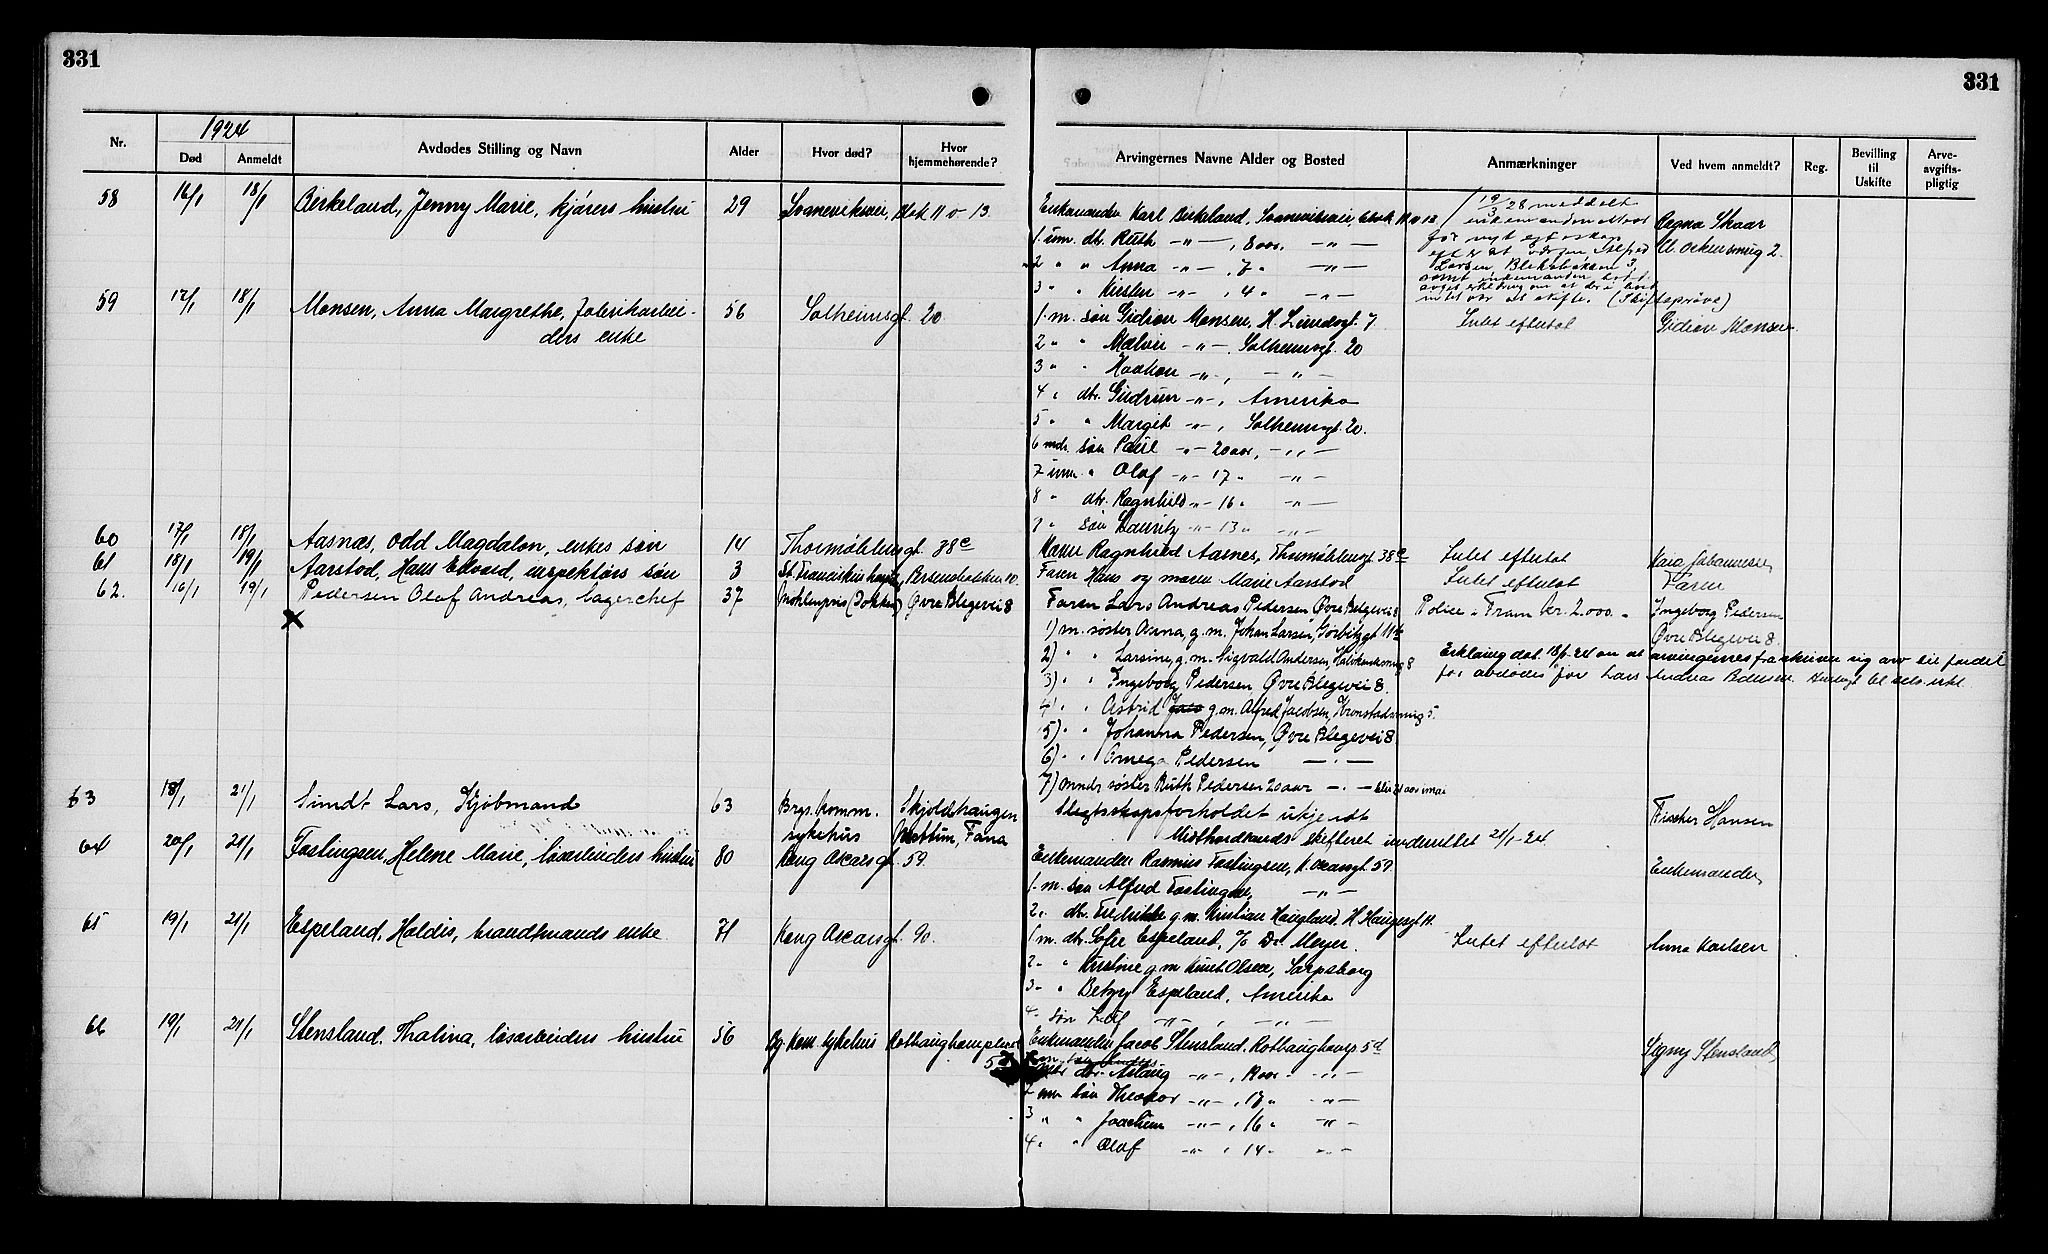 331
331
1924
Nr.
Død
Anmeldt
Avdødes Stilling og Navn
Alder
Hvor død?
Hvor hjemmehørende?
Arvingernes Navne Alder og Bosted
Anmærkninger
Ved hvem anmeldt?
Reg.
Bevilling til Uskifte
Arve-avgifts-pligtig
58 16/1 18/1 Birkeland, Jenny Marie, kjørers hustru 29 Svaneviksvei, blok 11 v 13.
Enkemanden Karl Birkeland, Svaneviksvei, blok 11 v 13
19/3 28 meddelt
1. um. dtr. Ruth -"-, 8 aar, -"-
2 " " Anna -"-, 7 " -"-
3 " " Kirsten -"-, 4 " -"-
Ragna Skaar
59 17/1 18/1 Monsen, Anna Margrethe, fabrikarbei-
ders enke
56 Solheimsgt. 20.
1. m. søn Gidion Monsen, H. Lundsgt. 7
Intet efterlot
Gidion Monsen
2 " " Malvin -"-, Solheimsgt. 20
3 " " Haakon -"-, -"-
4 " dtr. Gudrun -"-, Amerika
5 " " Margit -"-, Solheimsgt. 20.
6 mdr. søn Paul -"- 20 aar, -"-
7 um. " Olaf -"- 17 " -"-
8 " dtr. Ragnhild -"- 16 " -"-
9 " søn Lauritz -"- 13 " -"-
60 17/1 18/1 Aasnæs, Odd Magdalon, enkes søn 14 Thormøhlensgt. 38c
Moren Ragnhild Aasnes, Thormøhlensgt. 38c Intet efterlot Kaia Johannessen
61 18/1 19/1 Aarstod, Hans Edvard, inspektørs søn 3 St. Franciskus hospital,
Faren Hans og moren Marie Aarstod Intet efterlot Faren
62. 16/1 19/1 Pedersen Olaf Andreas, lagerchef 37 Møhlenpris (Dokken) Øvre Blegevei 8
Faren Lars Andreas Pedersen Øvre Blegevei 8 Police i Fram kr. 2.000.- Ingeborg Pedersen
Øvre Blegevei 8.
1) m. søster Asma, g. m. Johan Larsen,
2) " " Larsine, g. m. Sigvald Andersen,
Erklæring dat. 18/1-24 om at arvingerne fraskriver sig arv til fordel
3) " " Ingeborg Pedersen Øvre Blegevei 8.
for avdødes far Lars Andreas Pedersen
4) " " Astrid g. m. Alfred Jacobsen, Kronstadsmug 5.
5) " " Johanna Pedersen, Øvre Blegevei 8
6) " " Omega Pedersen -"-
7) mndr søster Ruth Pedersen 20 aar -"- blir 21 aar i mai
63 18/1 21/1 Sundt Lars, Kjøbmand 63 Brgs. komm.
sykehus
Skjoldhaugen
Nattun, Fana
Slegtskapsforholdet ukjendt
Midthordlands skifteret underrettet 21/1-24.
Fischer Hansen
64 20/1 21/1 Fastingsen, Helene Marie, løsarbeiders hustru 80 Kong Oscarsgt. 59.
Enkemanden Rasmus Fastingsen, K. Oscarsgt. 59.
Enkemanden
1. m. søn Alfred Fastingsen, -"-
2. " dtr. Fredrikke g. m. Kristian Haugland. H. Haugesgt. 11.
65 19/1 21/1 Espeland, Haldis, brandtmands enke 71 Kong Oscarsgt. 90.
1 m. dtr. Sofie Espeland, c/o Dr. Meyer.
Intet efterlot
Anna Karlsen
2. " " Kristine g. m. Knut Olsen, Sarpsborg
3. " " Betzy Espeland, Amerika
4. " søn Leif -"-, -"-
66 19/1 21/1 Stensland, Thalina, løsarbeiders hustru 56 Bg. kom. sykehus Rothaugkomplexet
5d
Enkemanden Jacob Stensland, Rothaugkomp. 5d
Signy Stensland
mdr dtr. Aslaug -"-, 19 aar -"-
2 um søn Theodor -"-, 17 " -"-
3 " " Joachim -"-, 16 " -"-
4 " " Olaf -"-, 14 " -"-